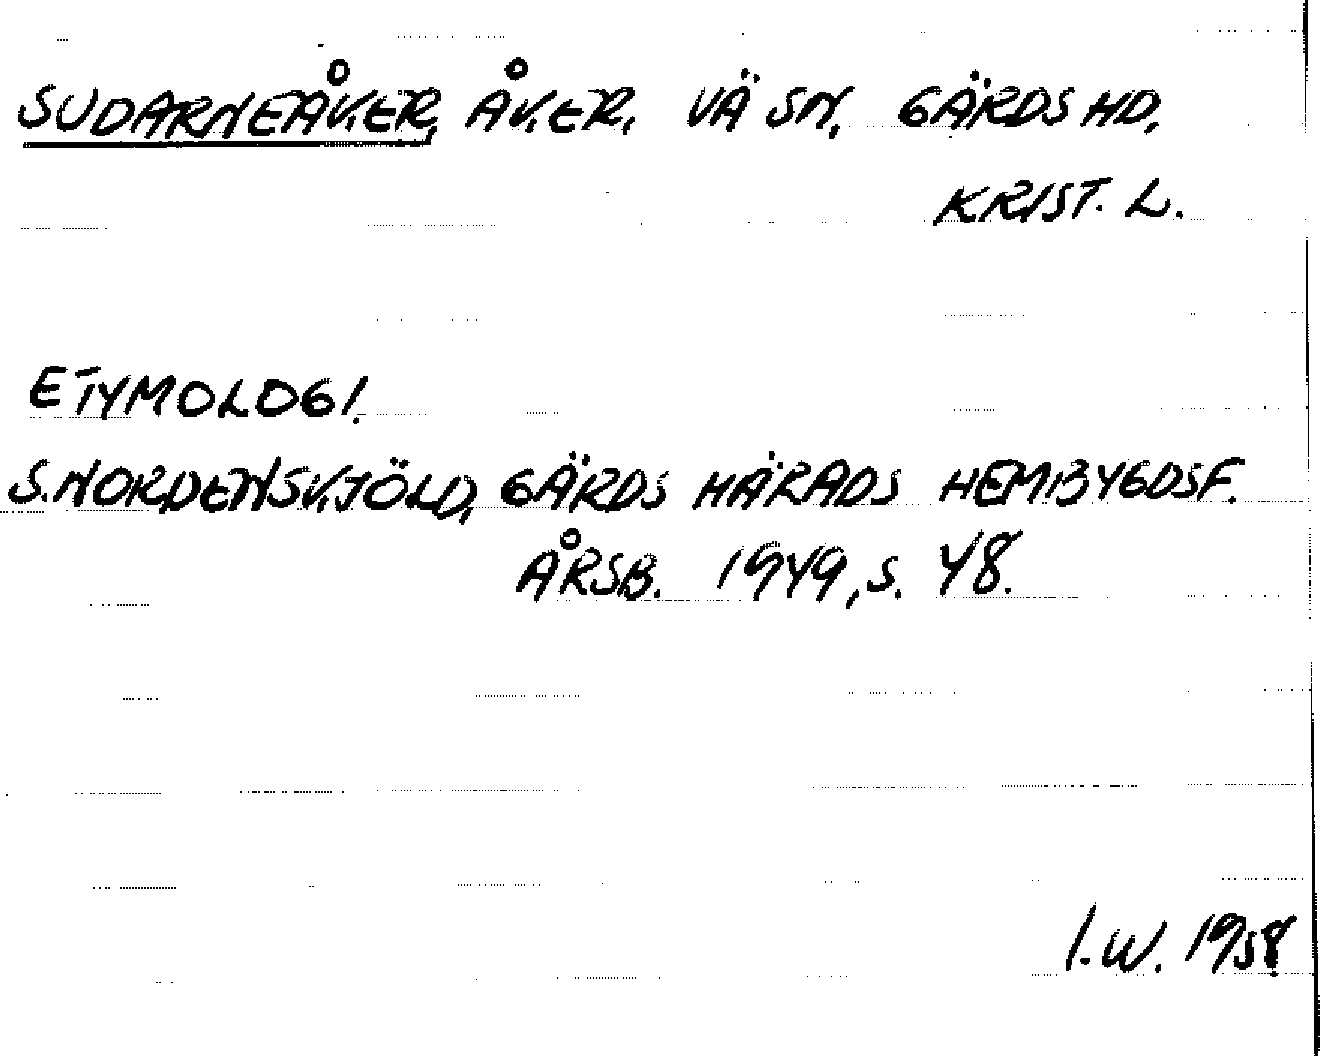 SUDARNEÅKER, ÅKER, VÄ SN, GÄRDS HD,
KRIST. L.
ETYMOLOGI.
S. NORDENSKJÖLD, GÄRDS HÄRADS HEMBYGDSF.
ÅRSB. 1949, s. 48.
I.W. 1958